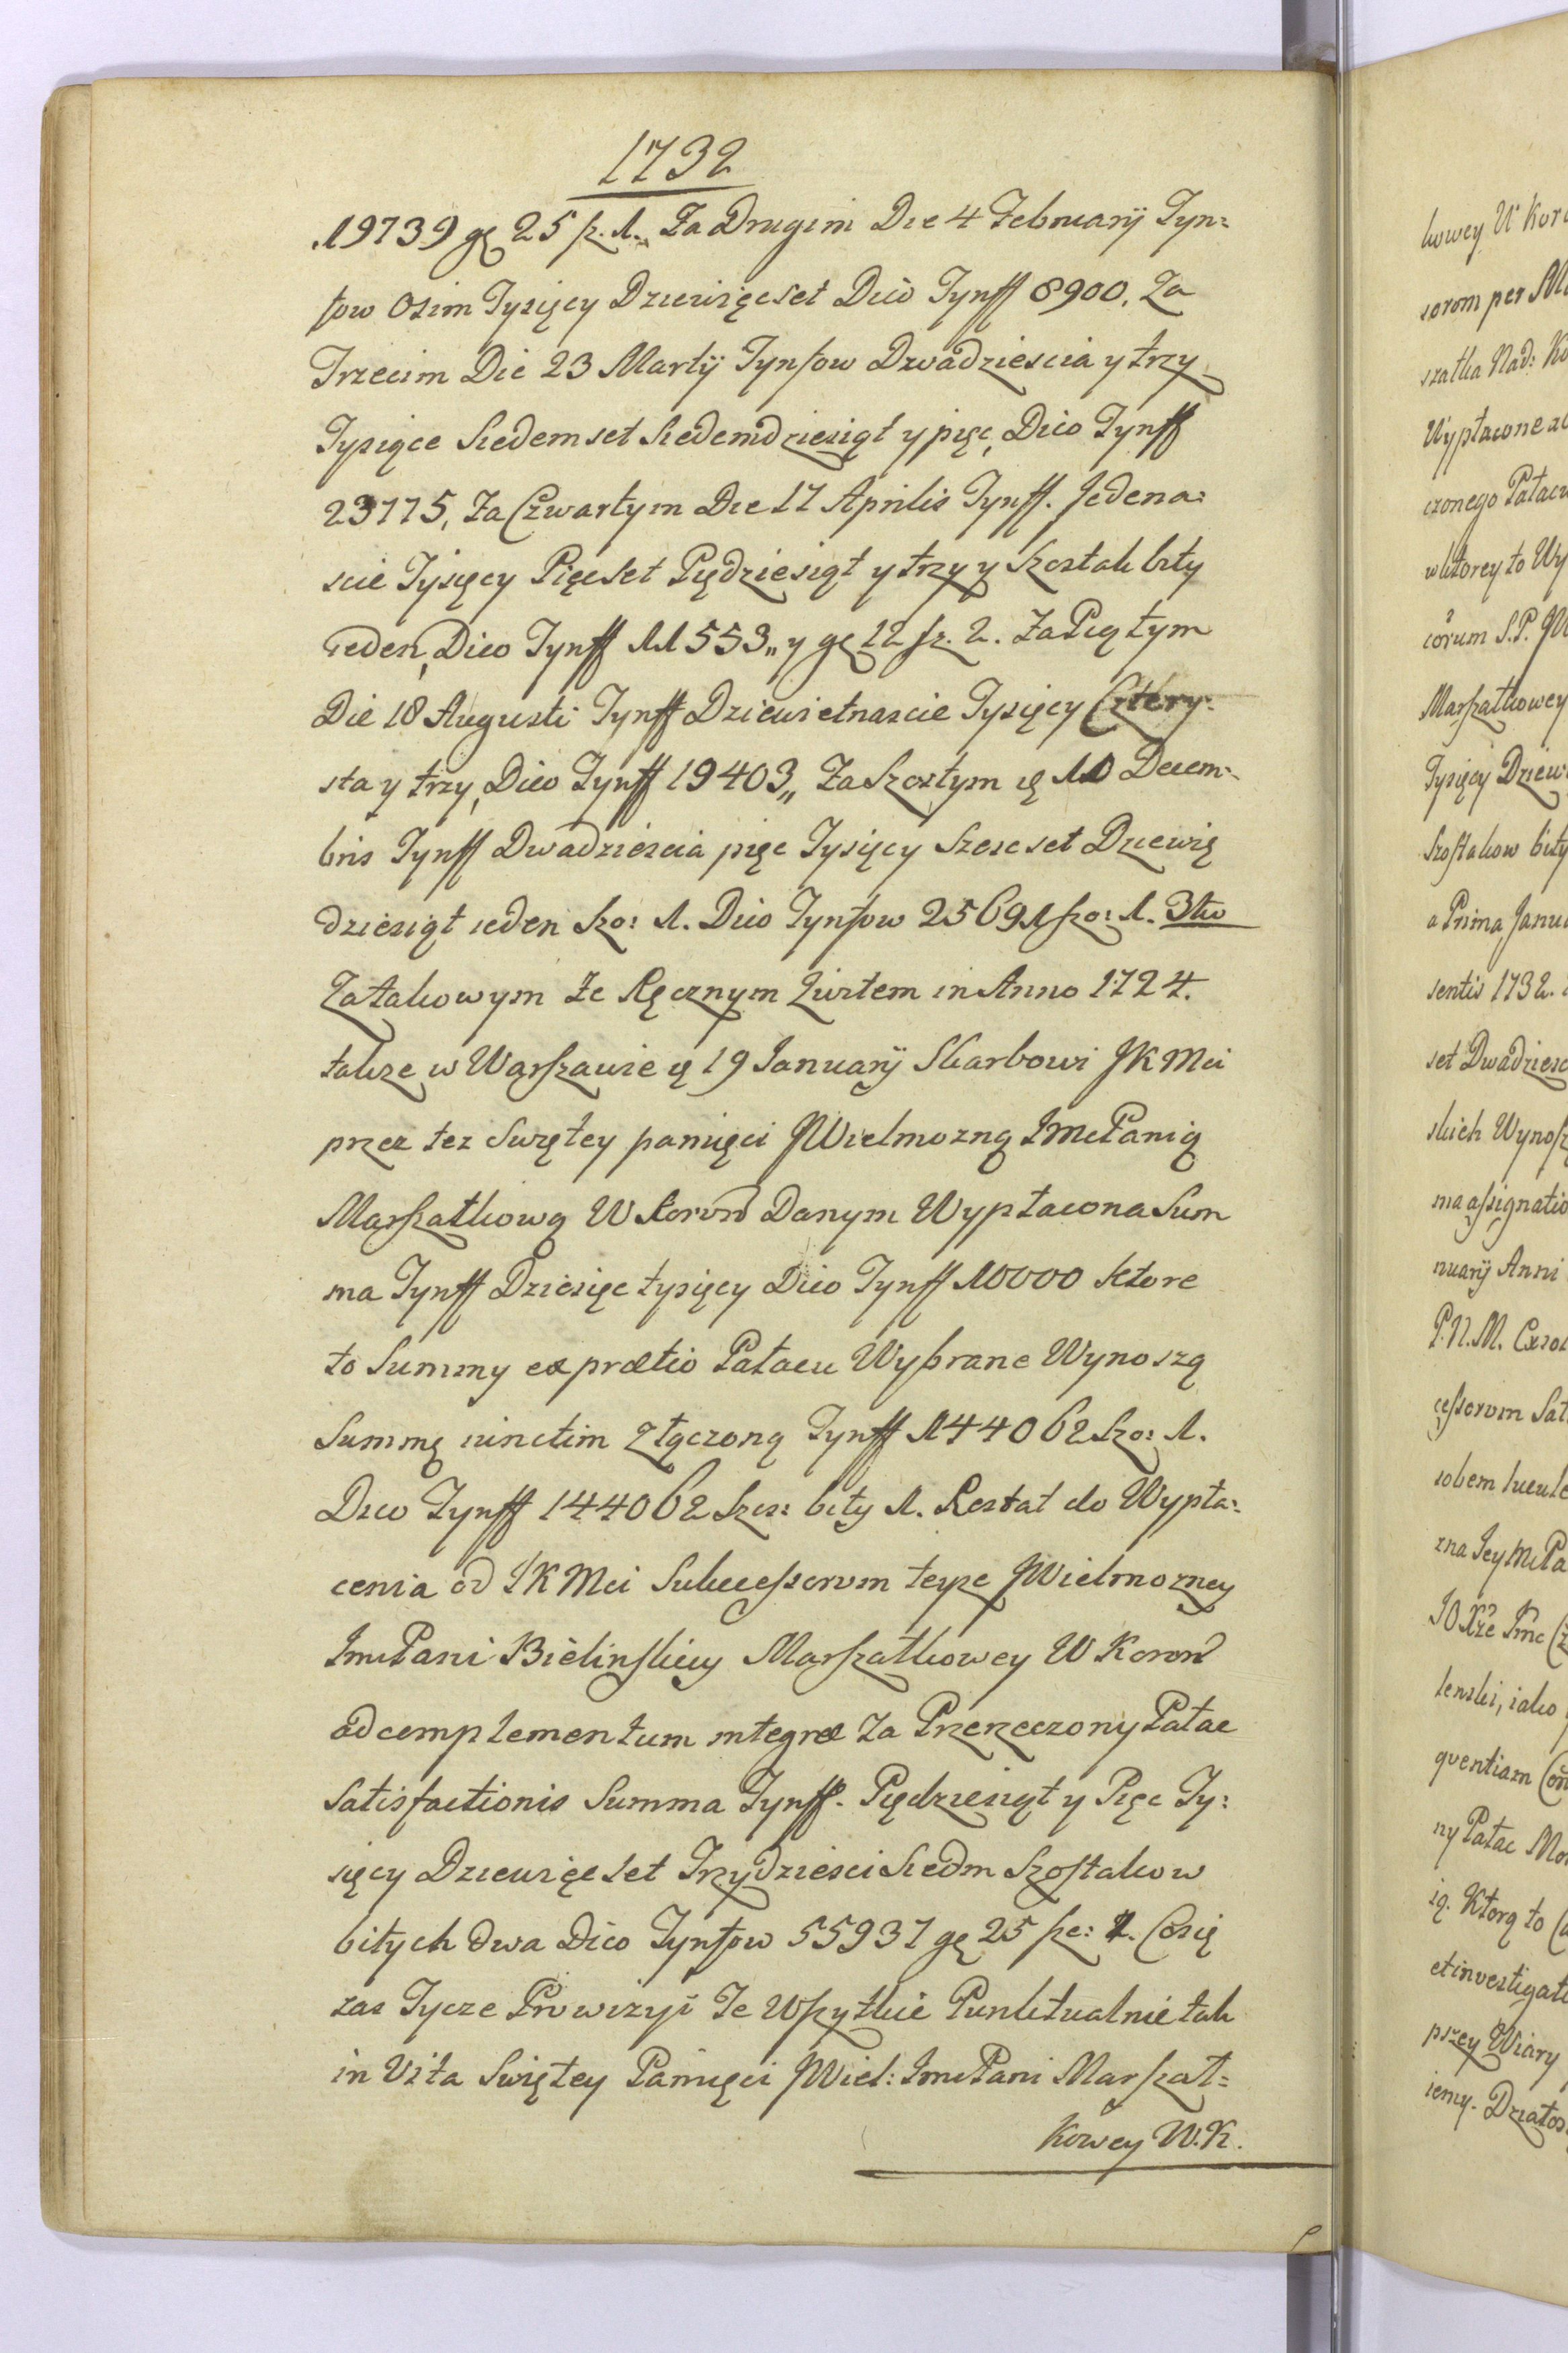 1732
19739 gę 25 sz. 1. Za Drugim Die 4 Februarÿ Tyn:
fow Osim Tysięcy Dziewięcset Dico Tynff 8900. Za
Trzecim Die 23 Martÿ Tynfow Dwadziescia y trzy
Tysiące Siedemset Siedemdziesiąt y pięc, Dico Tynff
23775, Za Czwartym Die 17 Aprilis Tynff. Jedena:
scie Tysięcy Pięcset Pędziesiąt y trzy y Szostak bity
ieden, Dico Tynff 11553,, y gę 12 sz. 2. Za Piątym
Die 18 Augusti Tynff Dziewietnascie Tysięcy Cztery:
sta y trzy, Dico Tynff 19403,, Za Szostym ę 10 Decem:
bris Tynff Dwadziescia pięc Tysięcy Szescset Dziewię
dziesiąt ieden Szo: 1. Dico Tynfow 25691 szo: 1. 3tio
Za takowym Ze Ręcznym Kwitem in Anno 1724.
także w Warszawie ę 19 Januarÿ Skarbowi JKMci
przez tez Swiętey pamięci JWielmozną JmcPanią
Marszałkową W Koron Danym Wypłacona Sum
ma Tynff Dziesięc tysięcy Dico Tynff 10000 Ktore
to Summy ex prætio Pałacu Wybrane Wynoszą
Summę iunctim Złączoną Tynff 144062 Szo: 1.
Dico Tynff 144062 Szos: bity 1. Restat do Wypła:
cenia od JKMci Sukcessorum teyze JWielmozney
JmcPani Bielinskiey Marszałkowey W Koron
ad complementum integræ za Przerzeczony Pałac
Satisfactionis Summa Tynff. Piędziesiąt y Pięc Ty:
sięcy Dziewięcset Trzydziesci Siedm Szostakow
bitych dwa Dico Tynfow 55937 gę 25 sze: 2. Co się
zas Tycze Prowizyi Te Wszytkie Punktualnie tak
in Vita Swiętey Pamięci JWiel: JmcPani Marszał=
kowey W.K.
kowey W
sorom per
szałka Nad:
Wypłacone
czonego Pałacu
w ktorey to Wy
corum S.P. JW
Marszałkowey
Tysięcy Dziew
Szostakow bity
a Prima Janu
sentis 1732.
set Dwadziesc
skich Wynosz
ma assignatio
nuarÿ Anni
P.N.M.
cessorum Sat
zna JeymcPa
JOXże Jmc
lenski, iako
quentiam
ny Pałac
ią. Ktorą to
et investigat
przey Wiary
iemy. Działos